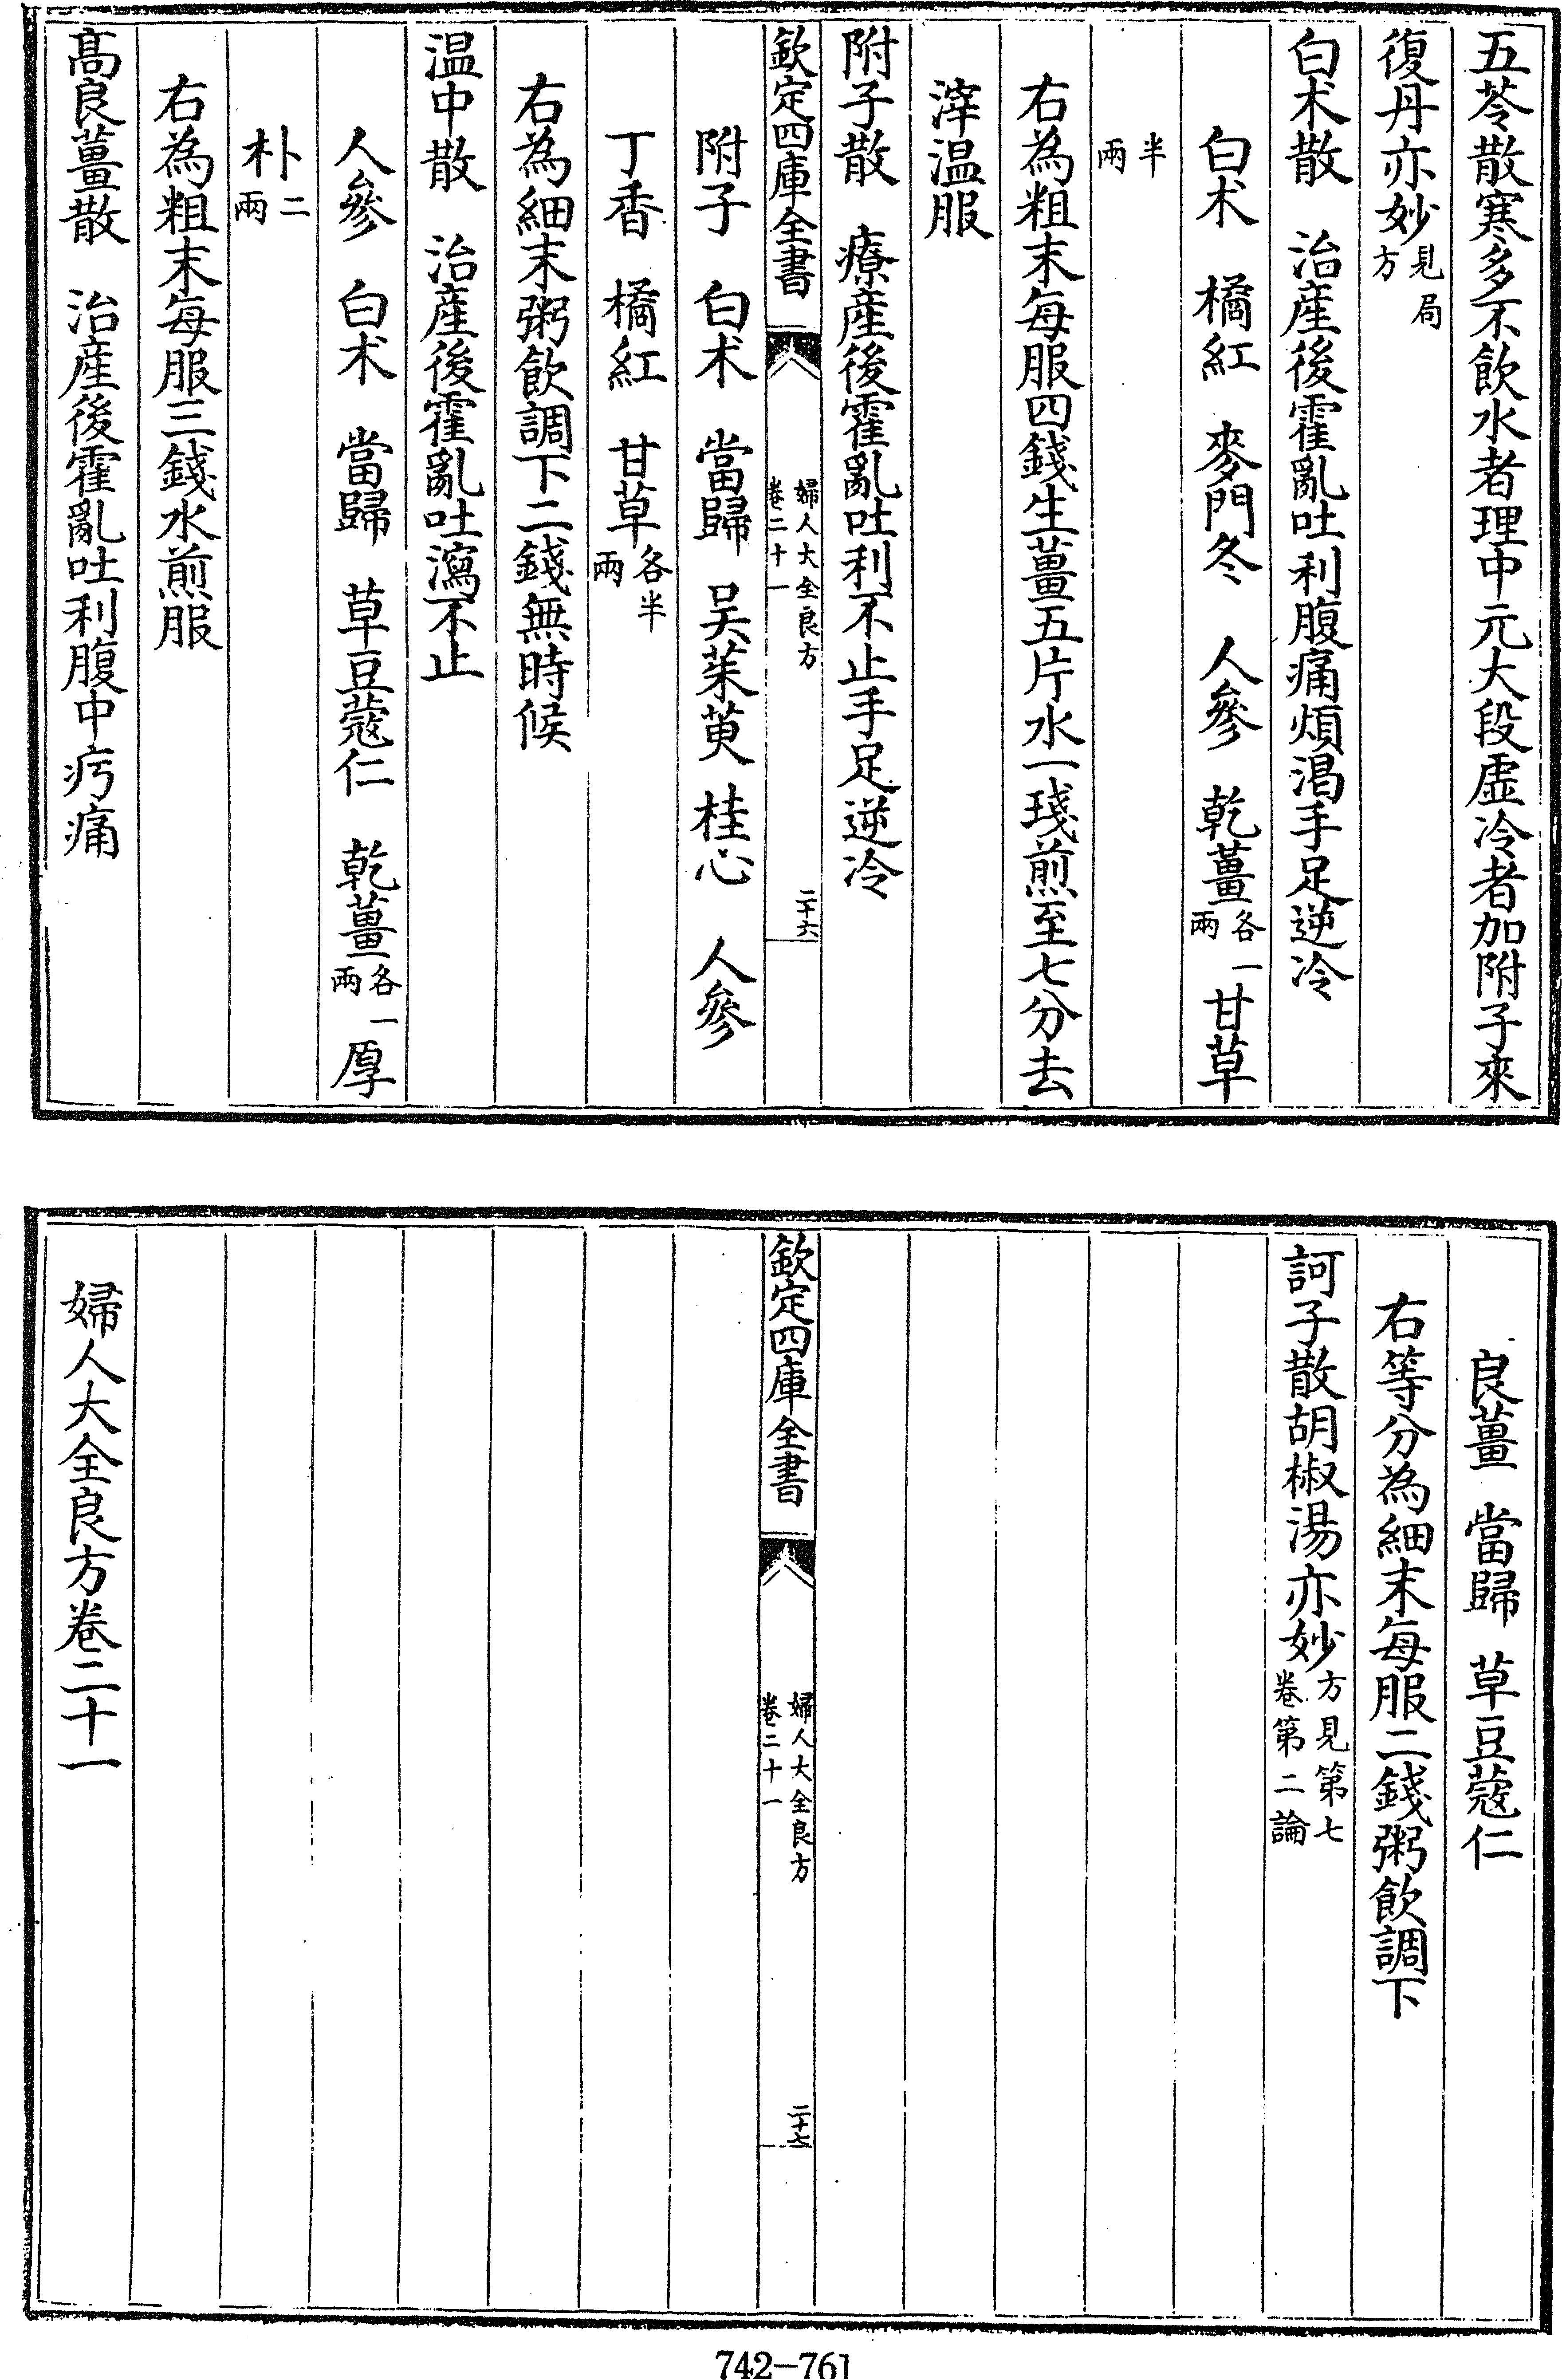 五苓散寒多不飲水者理中元大段虛冷者加附子來
復丹亦妙見局方
白术散　治産後霍亂吐利腹痛煩渴手足逆冷
白术　橘紅　麥門冬　人參　乾薑各一兩甘草
半兩
右為粗末每服四錢生薑五片水一琖煎至七分去
滓温服
附子散　療産後霍亂吐利不止手足逆冷
欽定四庫全書
婦人大全良方
卷二十一
二十六
附子　白术　當歸　吴茱萸　桂心　人參
丁香　橘紅　甘草各半兩
右為細末粥飲調下二錢無時候
温中散　治産後霍亂吐瀉不止
人參　白术　當歸　草豆蔻仁　乾薑各一兩厚
朴二兩
右為粗末每服三錢水煎服
高良薑散　治産後霍亂吐利腹中㽲痛
良薑　當歸　草豆蔻仁
右等分為細末每服二錢粥飲調下
訶子散胡椒湯亦妙方見第七卷第二論
欽定四庫全書
婦人大全良方
卷二十一
二十七
婦人大全良方卷二十一
742-761